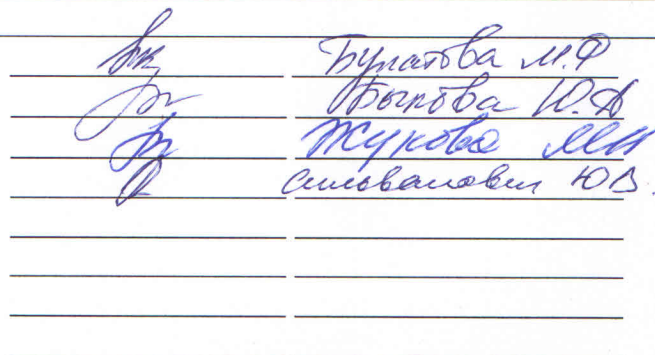 Булатова М.Ф
Быкова Ю.А
Жукова МН
Сильванович ЮВ.